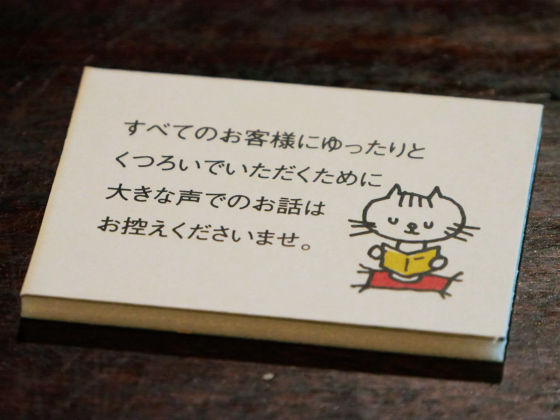 すべてのお客様にゆったりと
くつろいでいただくために
大きな声でのお話は
お控えくださいませ。